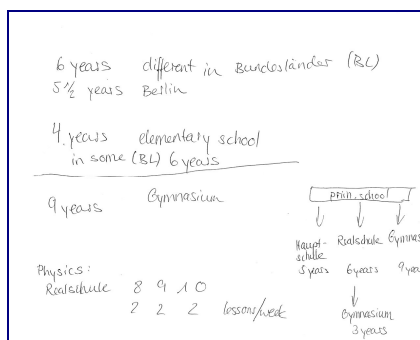 6 years different in Bundesländer (BL)
5 1/2 years Berlin
4 years elementary school
in some (BL) 6 years
9 years Gymnasium
prim. school
Haupt-
schule
5 years
Realschule
6 years
Gymnas
9 yea
Gymnasium
3 years
Physics:
Realschule 8 9 10
2 2 2 lessons/week